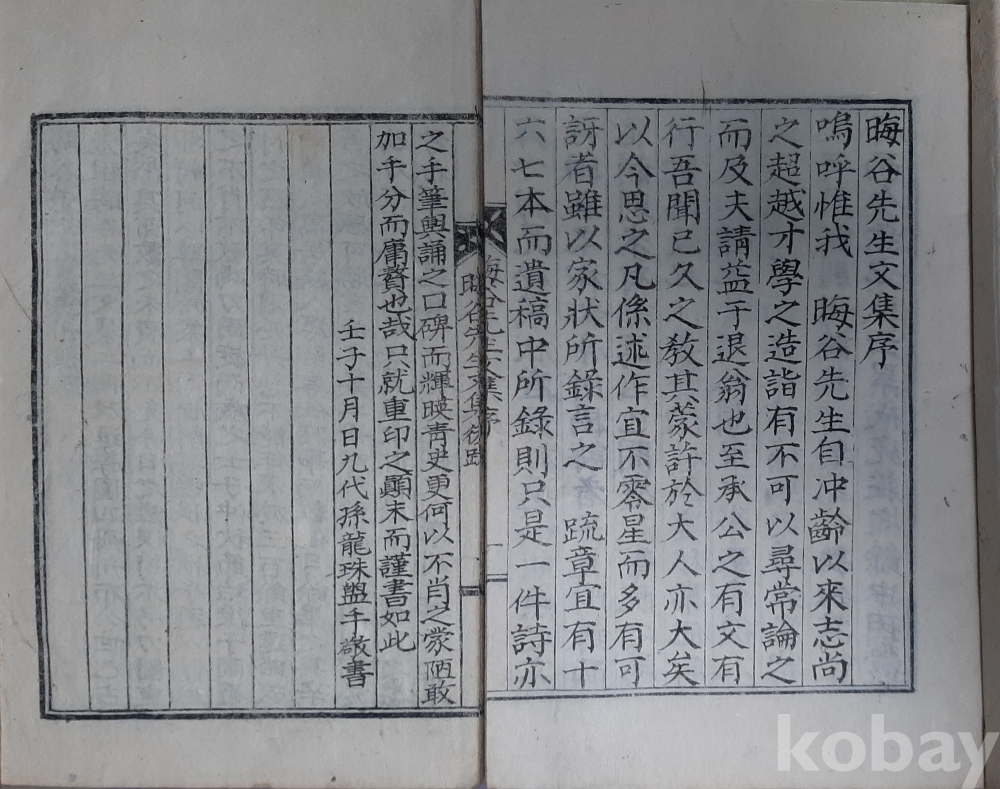 晦谷先生文集序
嗚呼惟我 晦谷先生自冲齡以來志尚
之超越才學之造詣有不可以尋常論之
而及夫請益于退翁也至承公之有文有
行吾聞已久之敎其蒙許於大人亦大矣
以今思之凡係述作宜不零星而多有可
訝者雖以家狀所錄言之 疏章宜有十
六七本而遺稿中所錄則只是一件詩亦
晦谷先生文集序
一
晦谷先生文集後跋
之手筆輿誦之口碑而輝暎靑史更何以不肖之蒙陋敢
加手分而庸贅也哉只就重印之顚末而謹書如此
壬子十月日九代孫龍珠盥手敬書
kobay